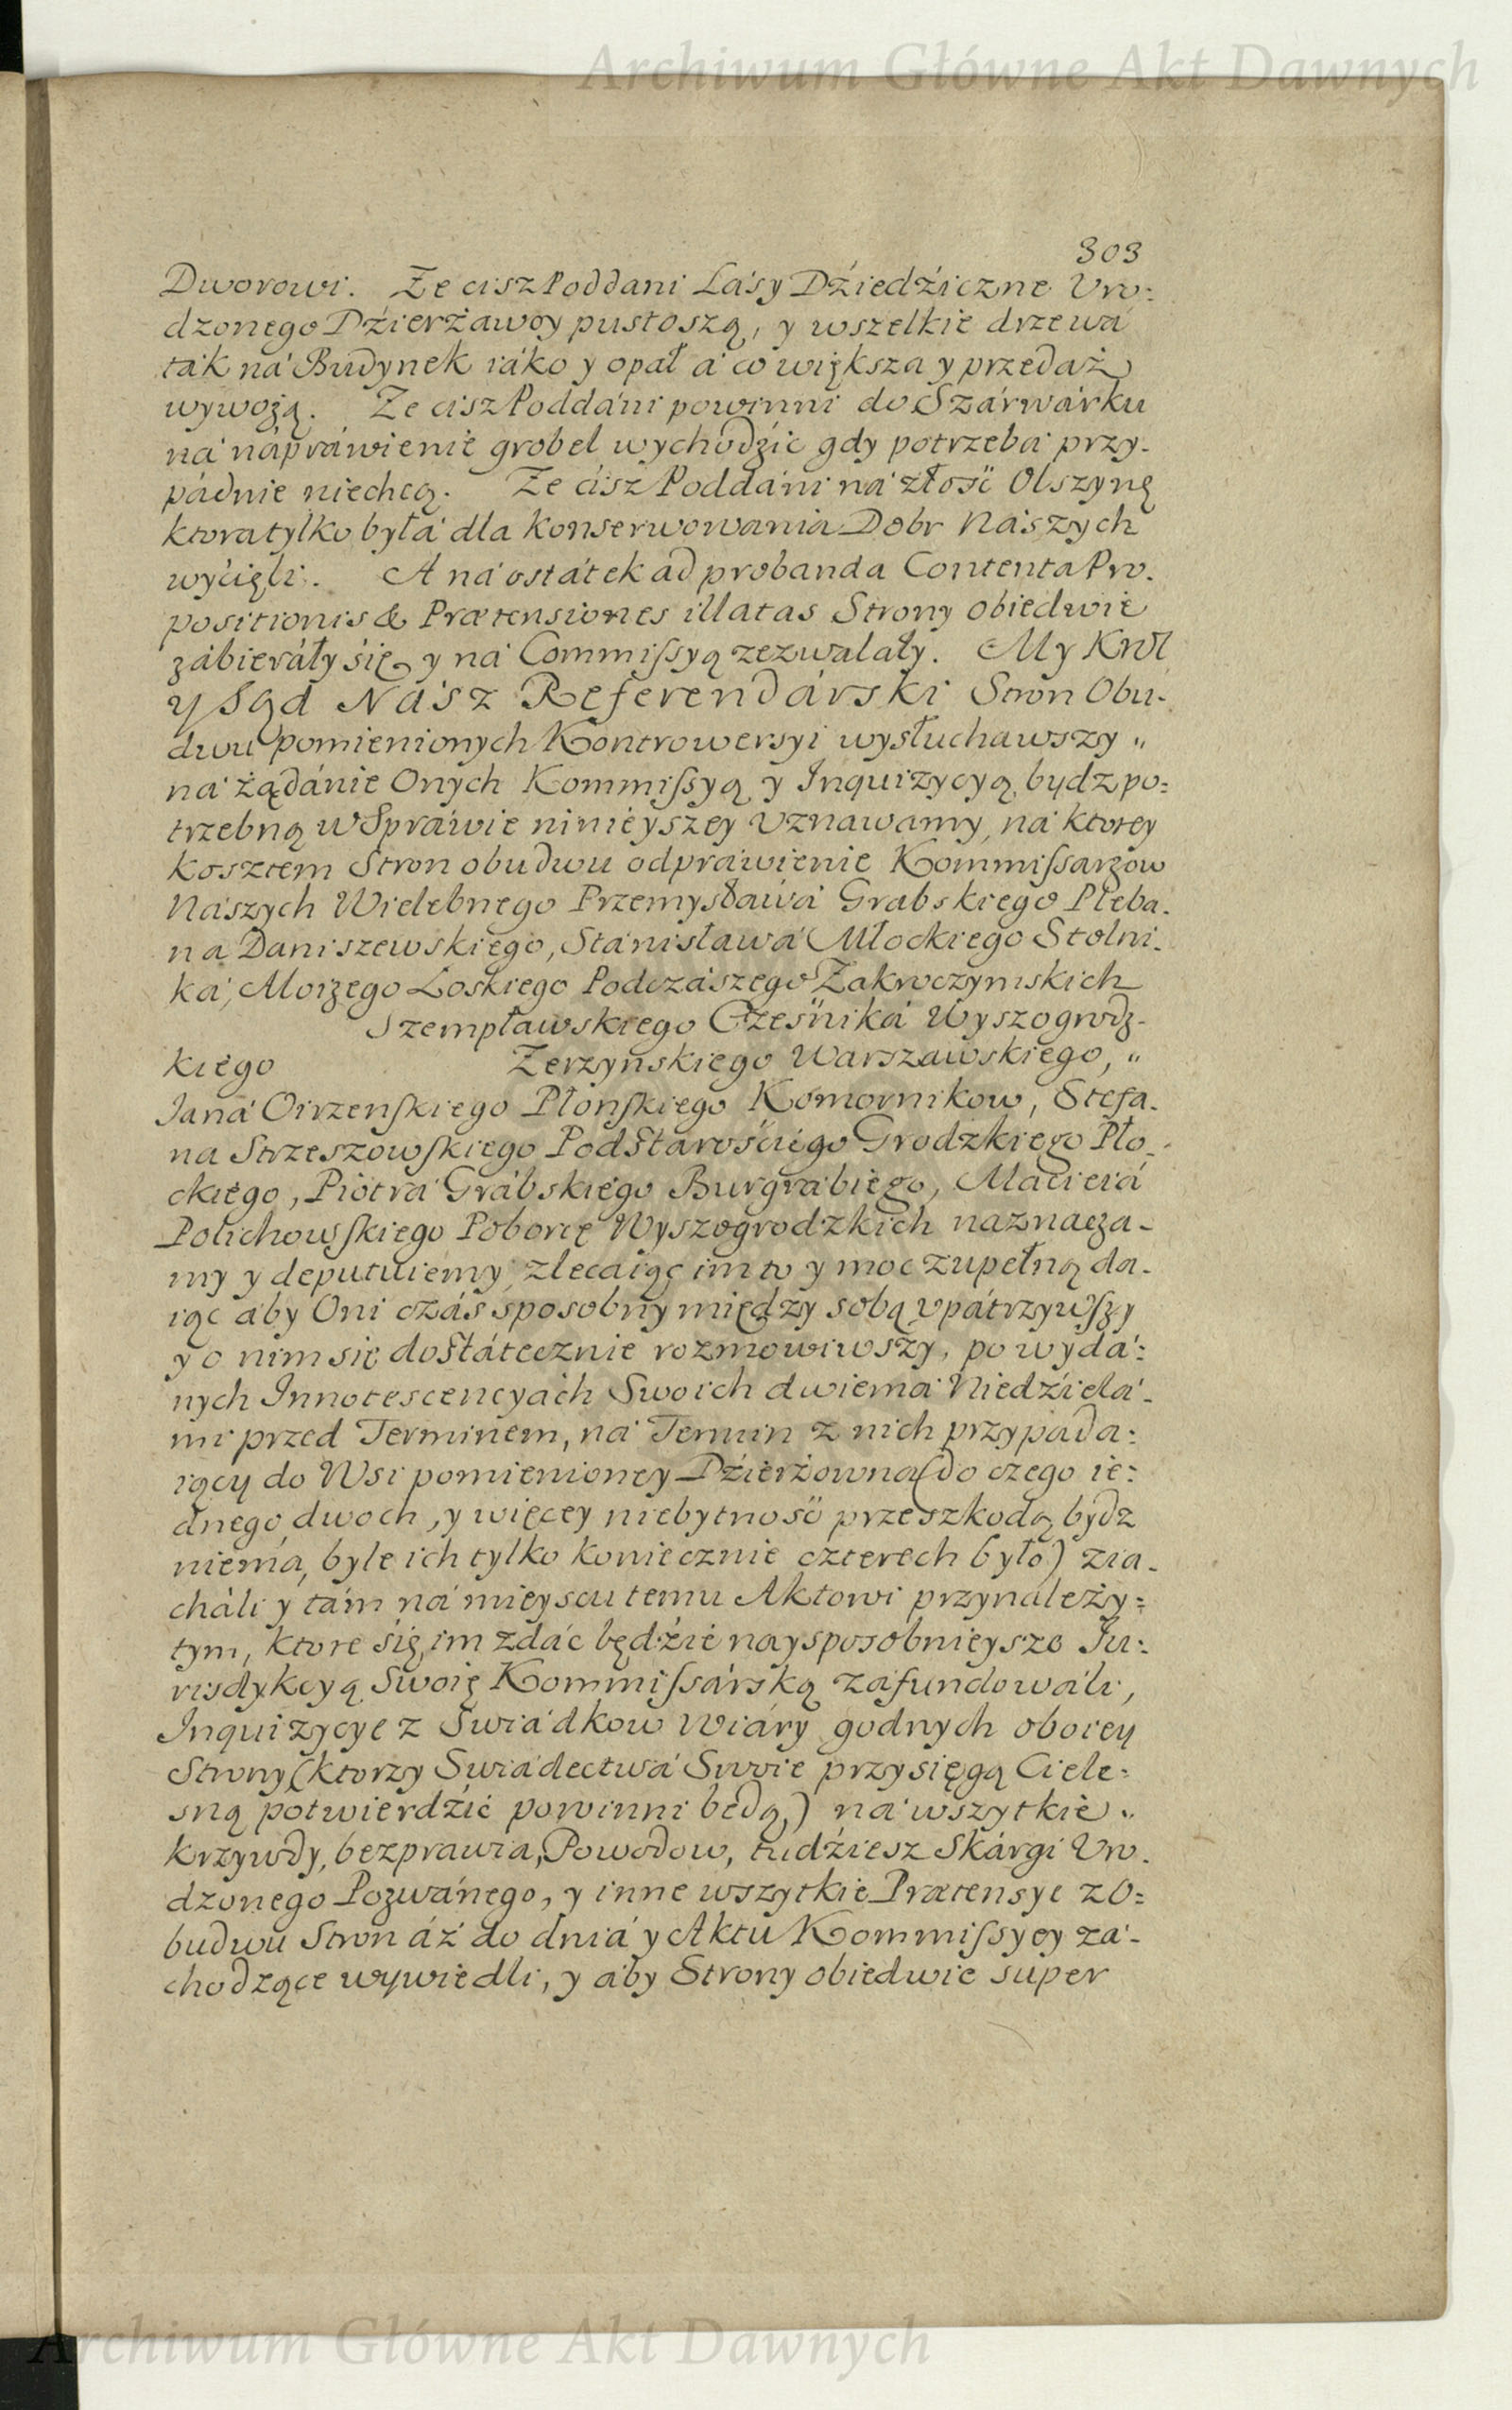 Archiwum Główne Akt Dawnych
303
Dworowi. Ze cisz Poddani Lásy Dźiedźiczne Vro:
dzonego Dźierżawcy pustoszą, y wszelkie drzewá
ták ná Budynek iáko y opał á co większa y przedaż
wywożą. Ze cisz Poddáni powinni do Szárwárku
ná nápráwienie grobel wychodźic gdy potrzebá przy-
pádnie niechcą. Ze cisz Poddáni ná złość Olszynę
ktora tylko byłá dla konserwowania Dobr Nászych
wyćięli. A ná ostátek ad probanda Contenta Pro-
positionis & Prætensiones illatas Strony obiedwie
zábieráły się, y ná Commissyą zezwalały. My Krol
y Sąd Nász Referendárski Stron Obu-
dwu pomienionych Kontrowersyi wysłuchawszy „
ná żądánie Onych Kommissyą y Inquizycyą bydz po:
trzebną w Spráwie ninieyszey Vznawamy, ná ktorey
kosztem Stron obudwu odpráwienie Kommissarzow
Nászych Wielebnego Przemysławá Grabskiego Pleba-
na Daniszewskiego, Stánisławá Młockiego Stolni-
ká, Moizego Łoskiego Podczászego Zakroczymskich
Szempławskiego Cześniká Wyszogrodz-
kiego Zerzyńskiego Warszawskiego, „
Janá Oirzenskiego Płonskiego Komornikow, Stefa-
na Strzeszowskiego Podstarościego Grodzkiego Pło-
ckiego, Piotrá Grábskiego Burgrábiego, Macieiá
Polichowskiego Poborcę Wyszogrodzkich naznacza-
my y deputuiemy, zlecaiąc im to y moc zupełną da-
iąc áby Oni czás sposobny między sobą vpátrzywszy
y o nim się dostátecznie rozmowiwszy, po wydá:
nych Innotescencyách Swoich dwiemá Niedźielá-
mi przed Terminem, ná Termin z nich przypada:
iący do Wsi pomienioney Dźierżowna (do czego ie:
dnego, dwoch, y więcey niebytność przeszkodą bydz
niema, byle ich tylko koniecznie czterech było) zia-
cháli y tám ná mieyscu temu Aktowi przynależy:
tym, ktore się im zdác będźie naysposobnieysze Ju:
risdykcyą Swoię Kommissárską zafundowáli,
Inquizycye z Swiádkow Wiáry godnych oboiey
Strony (ktorzy Swiádectwá Swoie przysięgą Ciele:
sną potwierdźić powinni będą,) ná wszytkie „
krzywdy, bezprawia, Powodow, tudźiesz Skárgi Vro-
dzonego Pozwánego, y inne wszytkie Prætensye z O:
budwu Stron áż do dniá y Aktu Kommissyey zá-
chodzące wywiedli, y áby Strony obiedwie super
Archiwum Główne Akt Dawnych